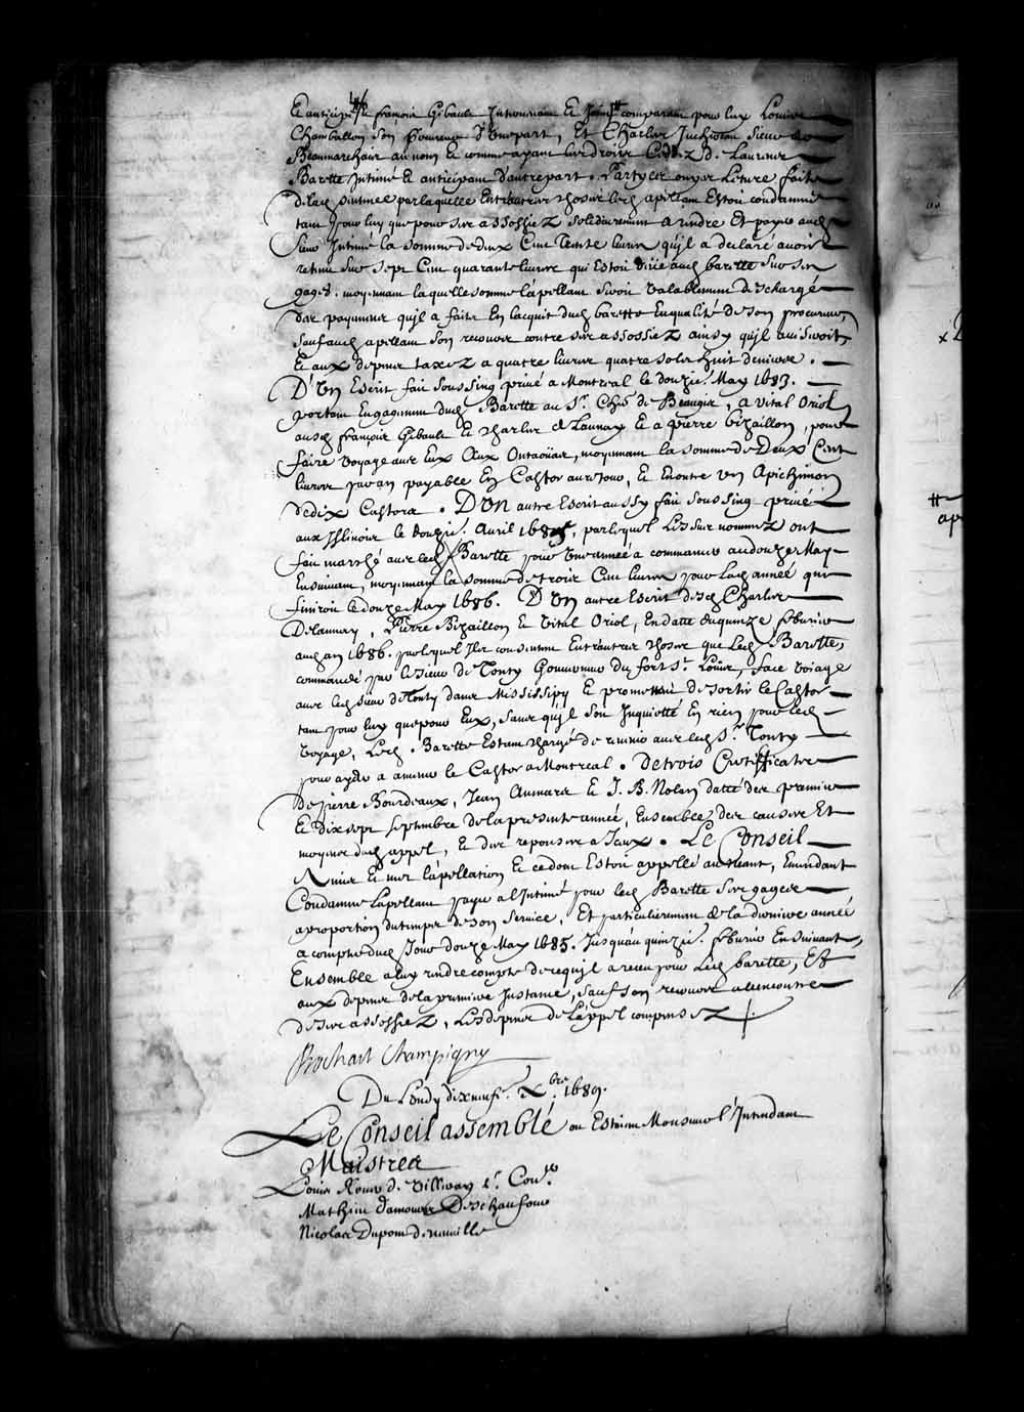 Et anticipé, françois Gibault Intervenant Et Joint comparant pour luy Louise
Chamballon son procureur d'Unepart, Et Charles Juchereau Sieur de
Beaumarchais au nom Et comme ayant les droits Ceddez de Laurens
Barette Intimé Et anticipant d'autrepart. Partyes ouyes Lecture faite
delad. sentence par laquelle Entr'autres choses led. apellant Estoit condamné
tant pour luy que pour ses assossiez solidairement a rendre Et payer aud.
Sieur Intimé la somme de deux Cent trente livres qu'jl a declaré avoir
retenu sur sept Cent quarante livres qui Estoit deüe aud. barette sur ses
gages, moyennant laquelle somme l'apellant seroit valablement dechargé
des payemens qu'jl a faits En l'acquit dud. barette En qualité de son procureur,
sauf aud. apellant son recours contre ses assossiez ainsy qu'jl auiseroit
Et aux depens taxez a quatre livres quatre sols huit deniers.
D'Un Escrit fait sous sing privé a Montreal le douzie. May 1683.
portant Engagement dud. Barette au Sr. de Beaugis, a vital Oriol
aud. françois Gibault Et charles de Launay Et a pierre bizaillon, pour
faire voyage avec Eux Aux Outaoüais, moyennant la somme de Deux Cent
livres par an payable En Castor au retour, Et En outre un Apichimon
de dix Castors. D'Un autre Escrit aussy fait sous sing privé
aux Jllinois le douzie. Avril 1685, par lequel Les sus nommez ont
fait marché avec led. Barette pour Une année a commencer au douze May
Ensuivant, moyennant la somme de trois Cent livres pour lad. année qui
finiroit le douze May 1686. D'Un autre Escrit desd. Charles
Delaunay, Pierre Bizaillon Et Vital Oriol, En datte du quinze feburier
aud. an 1686. par lequel Jls consentent Entr'autres choses que led. Barette,
commandé par le Sieur de Tonty Gouverneur du fort St. Loüis, face voiage
avec led. Sieur de Tonty dans Mississipy Et promettent de sortir le Castor
tant pour luy que pour Eux, sans qu'jl soit Inquietté En rien pour led.
voyage, Led. Barette Estant chargé de revenir avec led. Sr. Tonty
pour ayder a amener le Castor a Montreal. De trois Certifficats
de pierre Bourdeaux, Jean Aumars Et J. B. Nolan datté des premier
Et dix sept Septembre de la presente année, Ensemble des causes Et
moyens dud. appel, Et des reponses a Jceux. Le Conseil
A mis Et met l'apellation Et ce dont Estoit appellé au neant, Emendant
Condamne l'apellant payer a l'Intimé pour led. Barette ses gages
a proportion du temps de son service, Et particulierement de la derniere année
a compter dud. Jour douze May 1685. Jusqu'au quinzie. feburier Ensuivant,
Ensemble a luy rendre compte de ce qu'jl a receu pour led. barette, Et
aux depens de la premiere Instance, sauf son recours a lencontre
de ses assossiez, Les depens de l'appel compensez
Bochart Champigny
Du Lundy dixneufe. Xbre. 1689.
Le Conseil assemblé ou Estoient Monsieur l'Intendant
Maistres
Louis Rouer de Villeray 1er. Coner.
Mathieu Damours Deschaufour
Nicolas Dupont de neuville